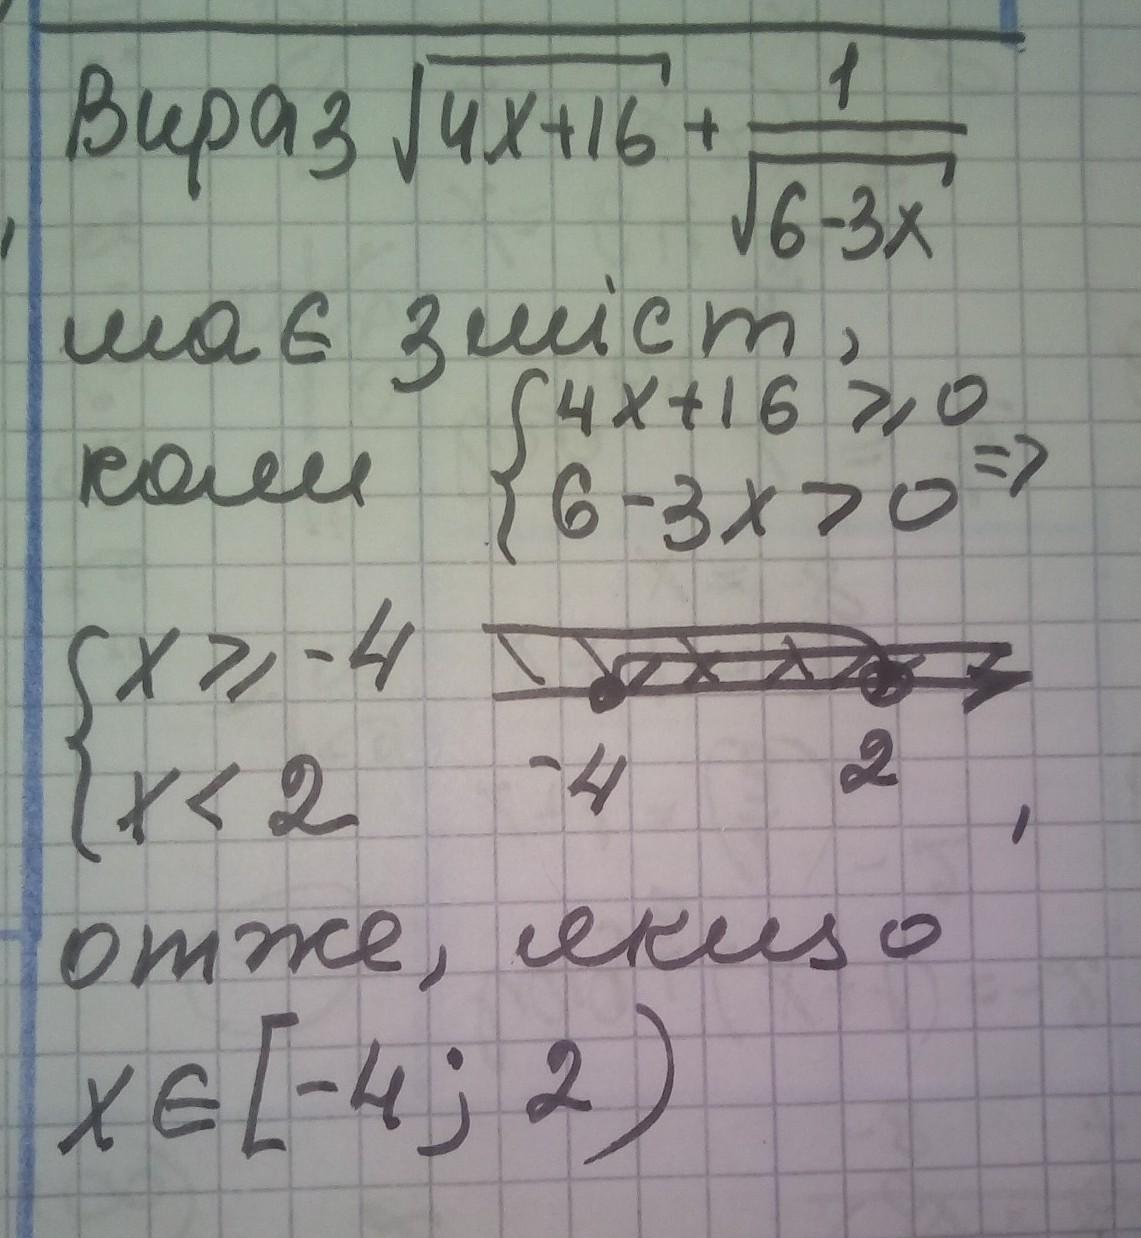 Вираз √4x+16 + 1/√6-3x
має зміст,
коли { 4x+16 ⩾ 0
6-3x > 0 =>
{ x ⩾ -4
x < 2
-4 2 ,
отже, якщо
x ∈ [-4; 2)